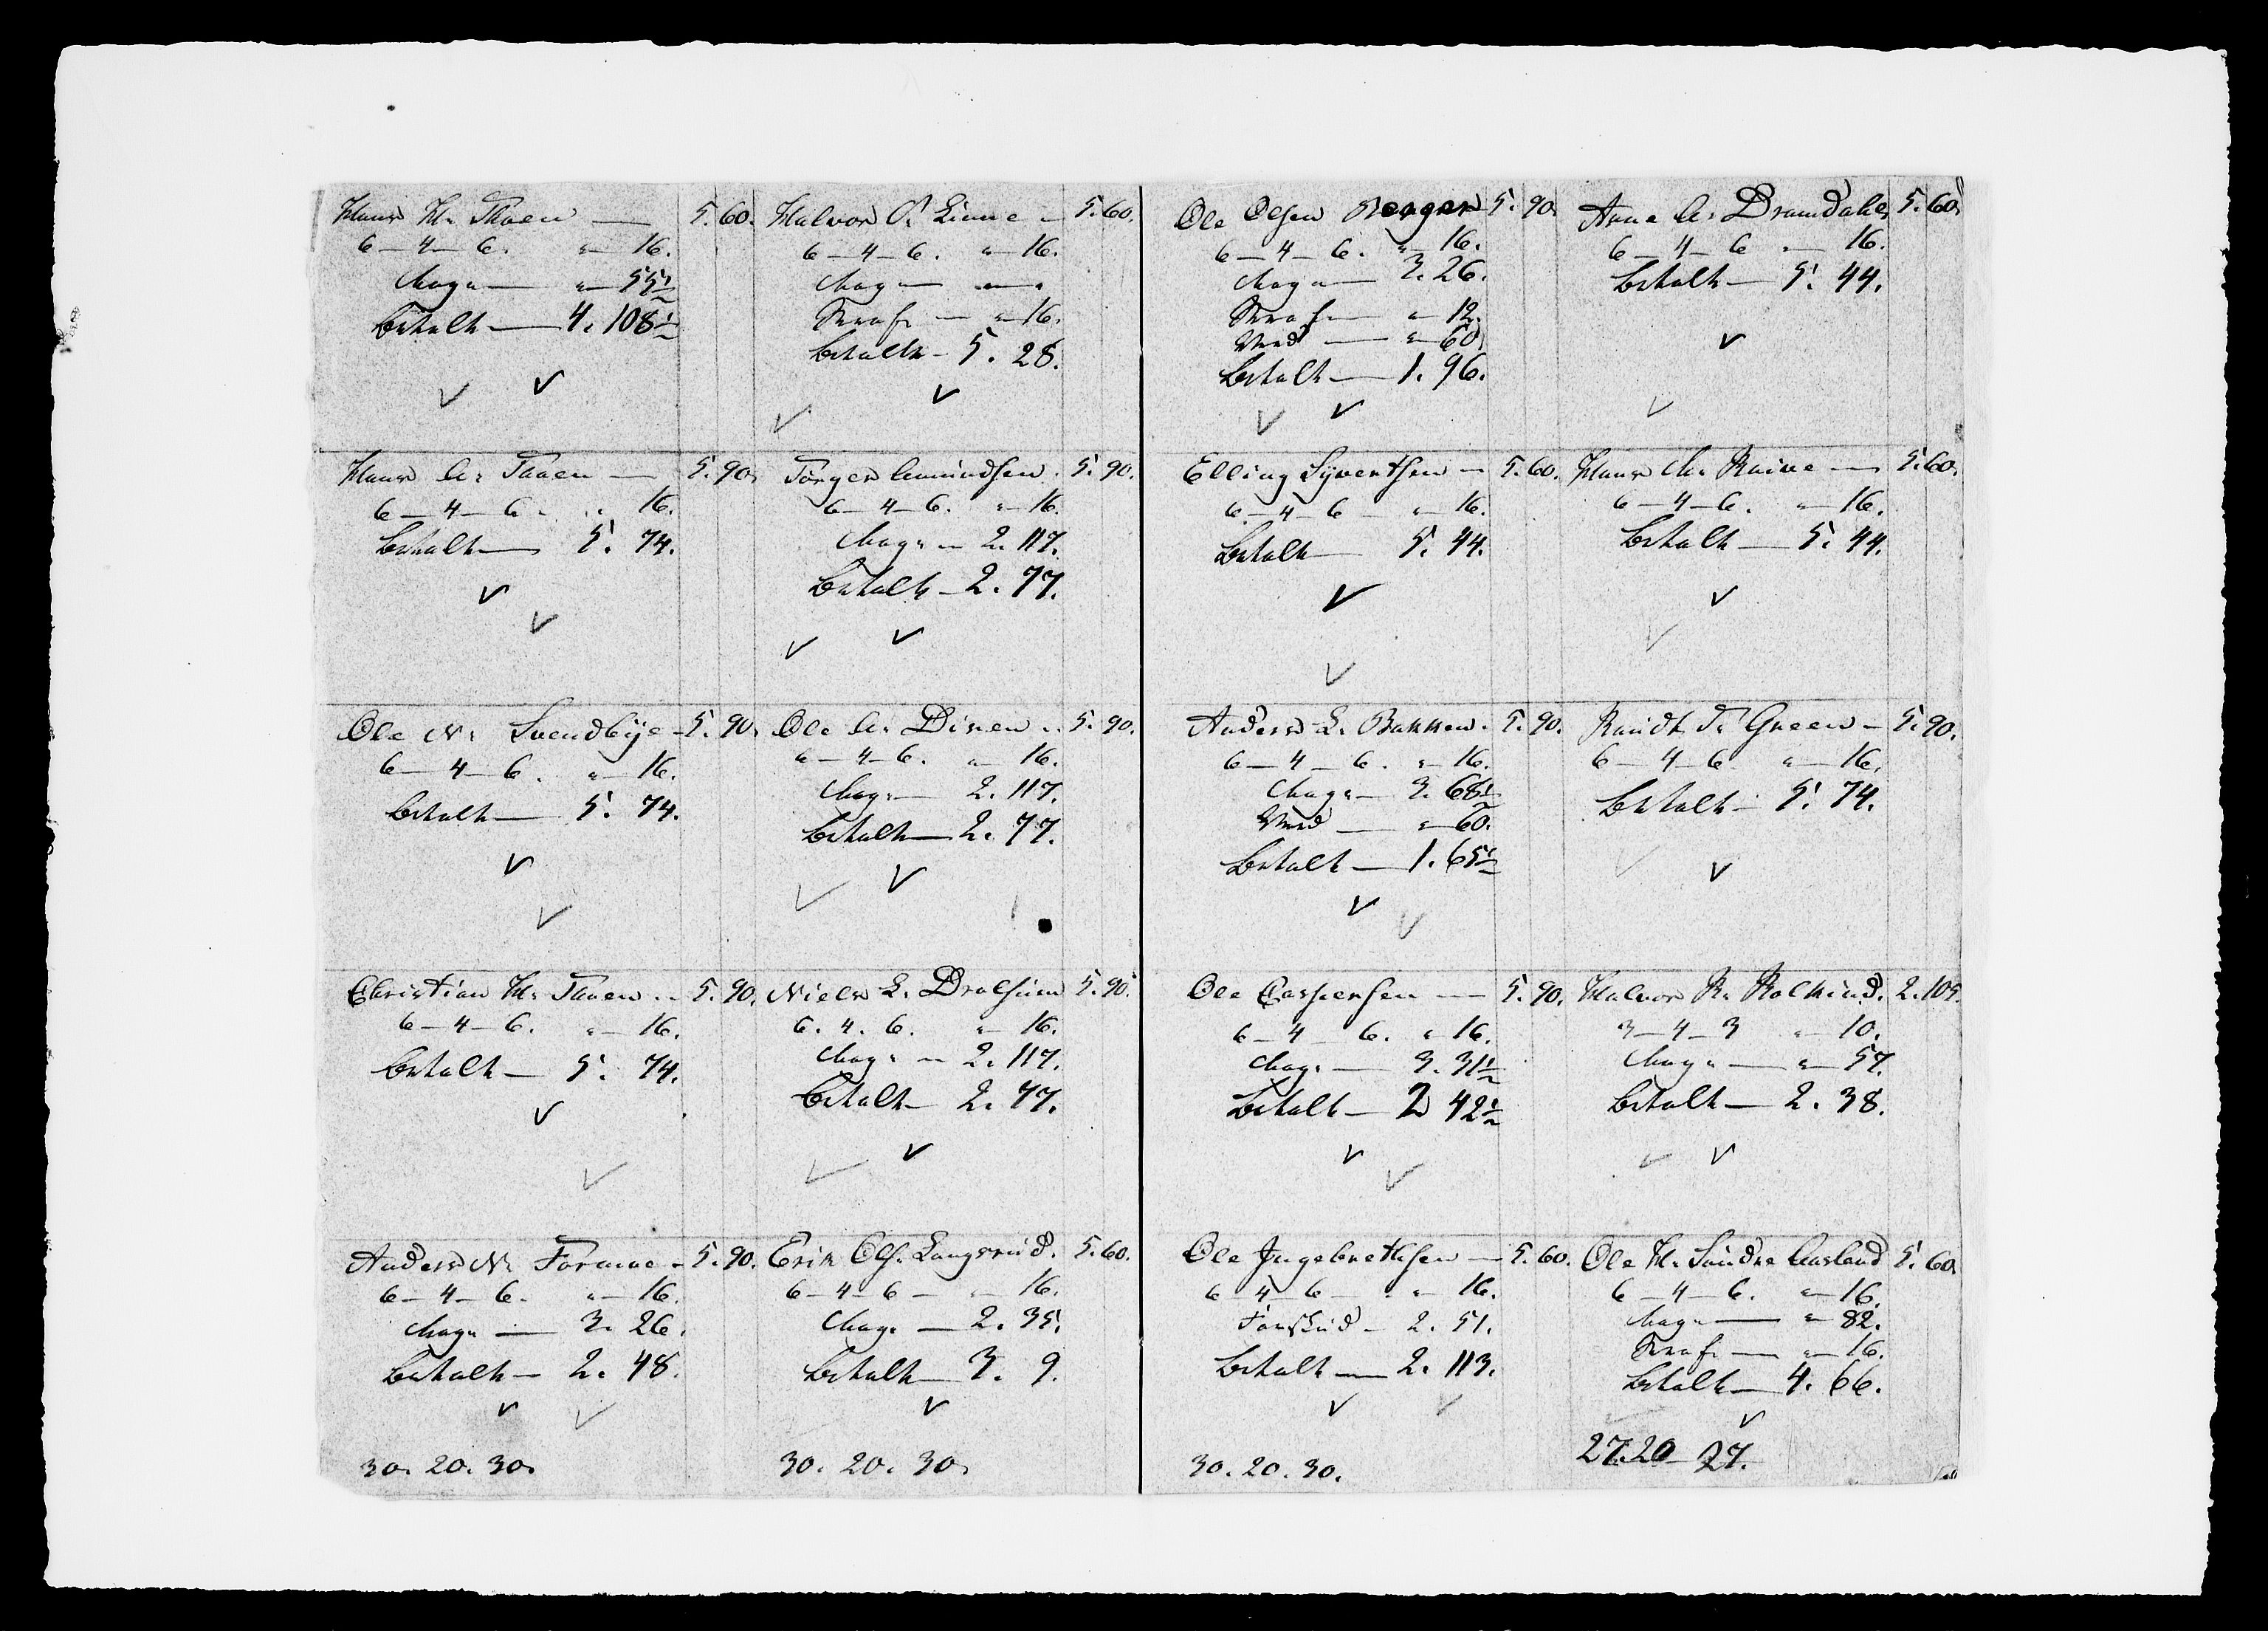 Hans H. Thoen — 5. 60.
6 — 4 — 6. " — 16.
Mag. — " — 55½
betalt — 4. 108½
Hans A. Thoen — 5. 90.
6 — 4 — 6. " 16.
betalt — 5. 74.
Ole N. Svendbye — 5. 90.
6 — 4 — 6. " — 16.
betalt — 5. 74.
Christian H. Thoen — 5. 90.
6 — 4 — 6. " — 16.
betalt — 5. 74.
Anders N. Formoe — 5. 90.
6 — 4 — 6. " — 16.
Mag. — 3. 26.
betalt — 2. 48.
30. 20. 30.
Halvor O. Linne — 5. 60.
6 — 4 — 6. " — 16.
Mag. — "
Straf. — " — 16.
betalt — 5. 28.
Torger Amundsen. 5. 90.
6 — 4 — 6. " — 16.
Mag. — 2. 117.
betalt — 2. 77.
Ole A. Diren — 5. 90.
6 — 4 — 6. " — 16.
Mag. — 2. 117.
betalt — 2. 77.
Niels L. Drolsum 5. 90.
6. 4. 6. " — 16.
Mag. — 2. 117.
betalt — 2. 77.
Erik Ols. Langerud. 5. 60.
6 — 4 — 6 — " — 16.
Mag. — 2. 35.
betalt — 3. 9.
30. 20. 30.
Ole Olsen 5. 90.
6 — 4 — 6. " — 16.
Mag. — 3. 26.
Straf. — " — 12.
Ved — " — 60.
betalt — 1. 96.
Elling Syvertsen — 5. 60.
6 — 4 — 6 " — 16.
betalt — 5. 44.
Anders L. Bakken. 5. 90.
6 — 4 — 6. " — 16.
Mag. — 3. 68½
Ved — " — 60.
betalt — 1. 65½
Ole Caspersen — 5. 90.
6 — 4 6. " 16.
Mag. — 3. 31½
betalt — 2 42½
Ole Ingebrethsen — 5. 60.
6 — 4 — 6 — " — 16.
Forskud — 2. 51.
betalt — 2. 113.
30. 20. 30.
Anne A. Dramdahl 5. 60.
6 — 4 — 6 " — 16.
betalt — 5. 44.
Hans M. — 5. 60.
6 — 4 — 6. " — 16.
betalt — 5. 44.
Randt T. Green — 5. 90.
6 — 4 — 6. " — 16.
betalt — 5. 74.
Halvor R. Rolkind. 2. 105.
3 — 4 — 3 " — 10.
Mag. — " — 57.
betalt — 2. 38.
Ole H. Søndre Aasland 5. 60.
6 — 4 — 6. " — 16.
Mag. — " — 82.
Straf. — " — 16.
betalt — 4. 66.
27. 20 27.